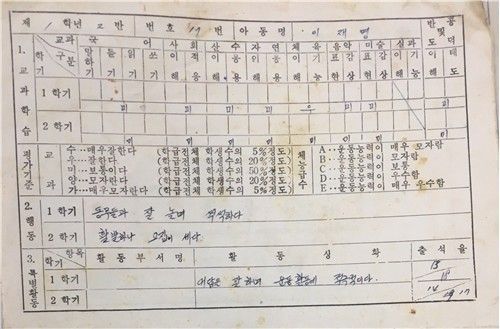 제 1 학년 2 반 번호 19 번 아동명 이재명 반공 및 도덕
1. 교과학습 학기 교과 구분 국어 사회 산수 자연 체육 음악 미술 실과
말하기 듣기 읽기 쓰기 이해 적응 이해 응용 이해 기능 표현 감상 표현 감상 이해 기능 이해 태도
1 학기
미 미 미 미 미 우 미 미
2 학기
미 미 미 미
평가기준 교과 수‥매우잘한다 (학급전체 학생수의 5%정도) 체능급수 A‥운동능력이 매우 모자람
우‥잘한다 (학급전체 학생수의 20%정도) B‥운동능력이 모자람
미‥보통이다 (학급전체 학생수의 50%정도) C‥운동능력이 보통
양‥모자란다 (학급전체 학생수의 20%정도) D‥운동능력이 우수함
가‥매우모자란다 (학급전체 학생수의 5%정도) E‥운동능력이 매우 우수함
2. 행동 1 학기 동무들과 잘 놀며 씩씩하다
2 학기 활발하나 고집이 세다.
3. 특별활동 학기 항목 활동부서명 활동상황 출석율
1 학기 대답은 잘 하며 운동 활동에 적극적이다.
2 학기